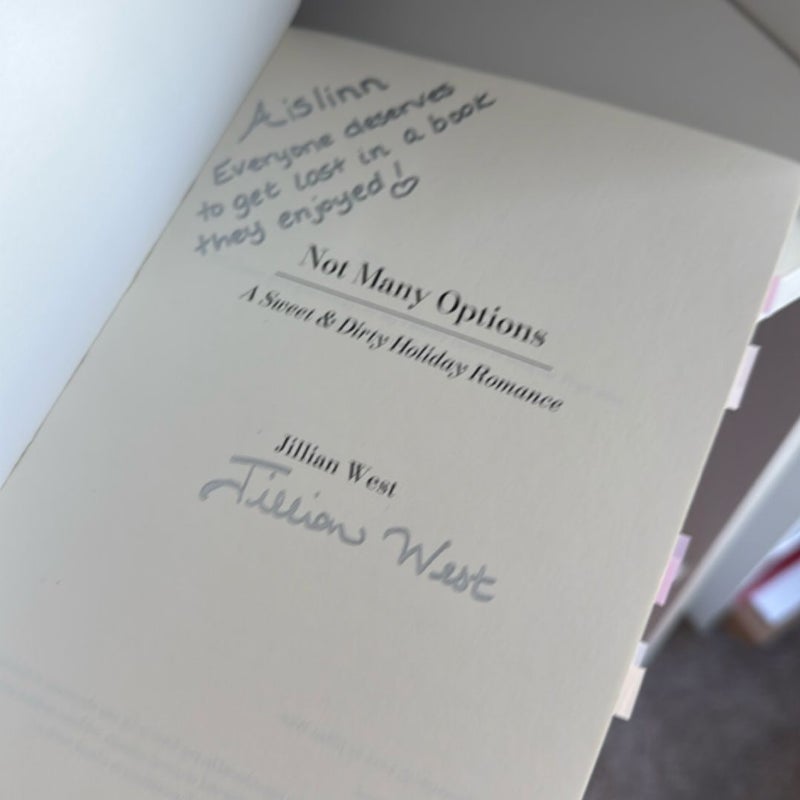 Aislinn
Everyone deserves
to get lost in a book
they enjoyed! ♡
Not Many Options
A Sweet & Dirty Holiday Romance
Jillian West
Jillian West